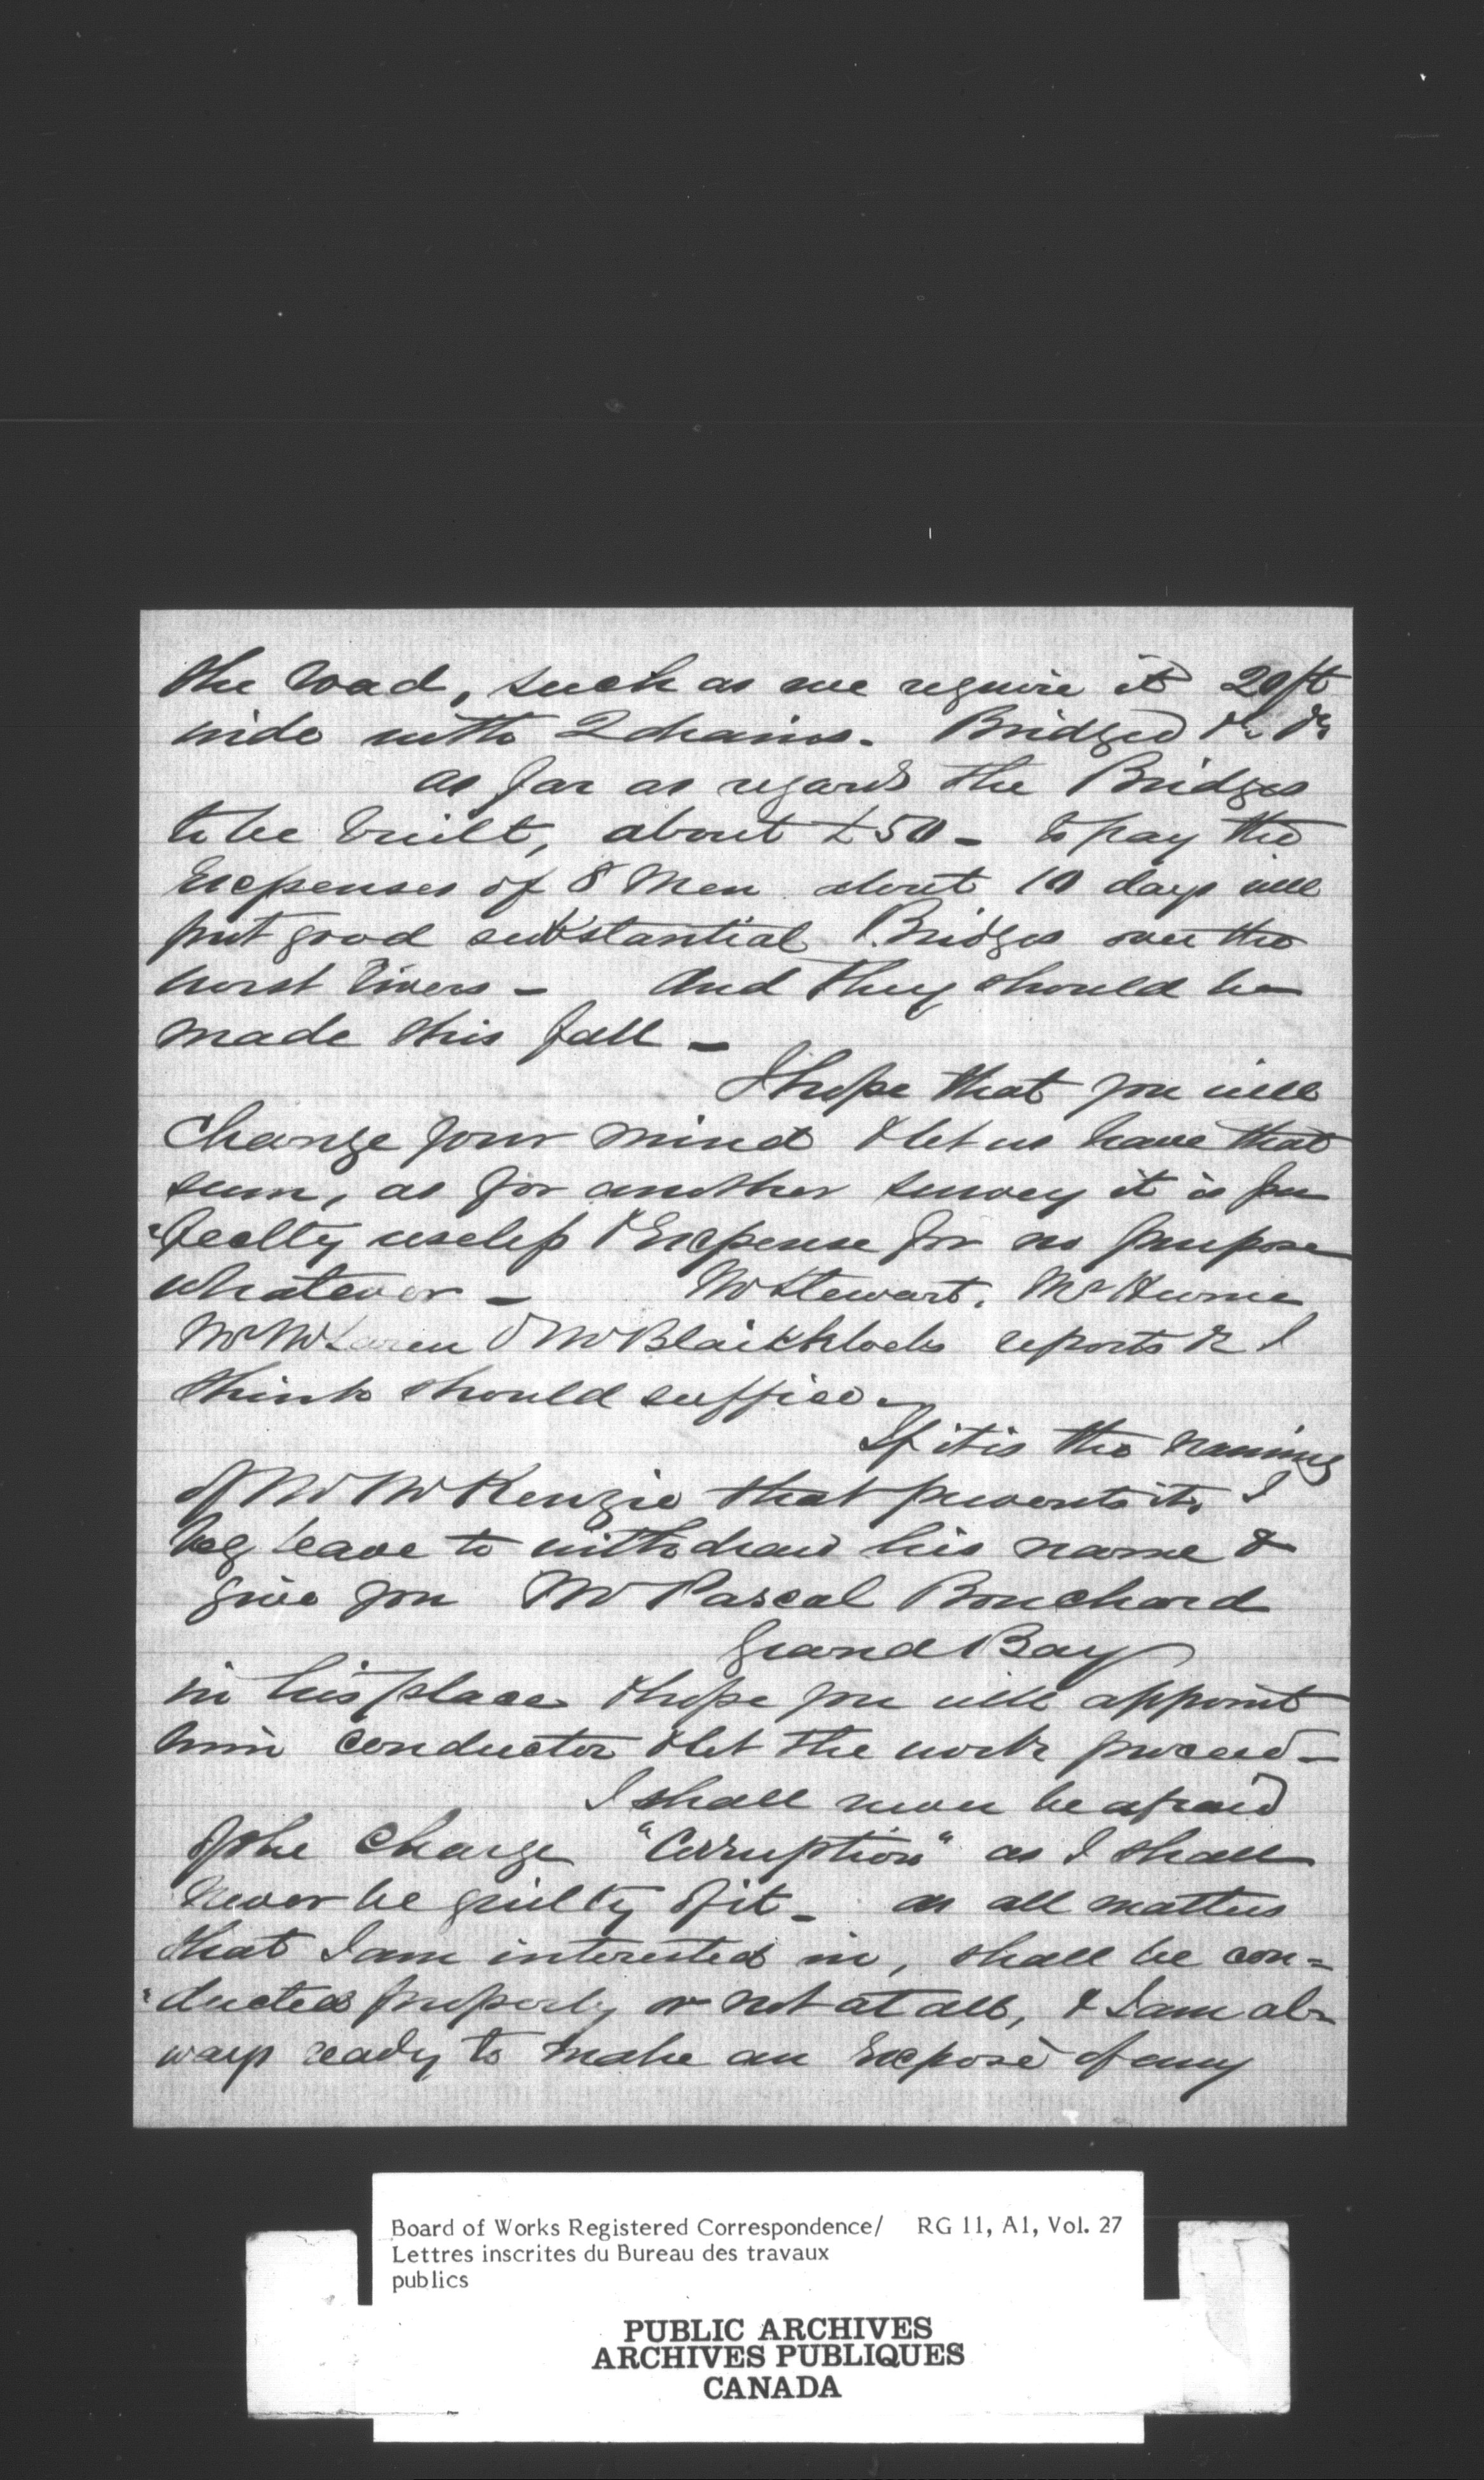 the road, such as we require it 20 ft
wide with 2 drains. Bridged &c &c
as far as regards the Bridges
to be built, about £50 - to pay the
Expenses of 8 Men about 10 days will
put good substantial Bridges over the
worst rivers - And they should be
made this fall -
I hope that you will
Change your mind & let us have that
sum, as for another survey it is per
"fectly useless & Expense for no purpose
whatever - Mr Stewart. Mr Hume
Mr McLaren & Mr Blaiklocks reports &c I
think should suffice.
If it is the naming
of Mr McKenzie that prevents it. I
beg leave to withdraw his name &
give you Mr Pascal Bouchard
Grand Bay
in his place & hope you will appoint
him conductor & let the work proceed -
I shall never be afraid
of the Charge "Corruption" as I shall
never be guilty of it - as all matters
that I am interested in, shall be con=
"ducted properly or not at all, & I am al=
ways ready to make an Exposé of any
Board of Works Registered Correspondence/ RG 11, A1, Vol. 27
Lettres inscrites du Bureau des travaux
publics
PUBLIC ARCHIVES
ARCHIVES PUBLIQUES
CANADA